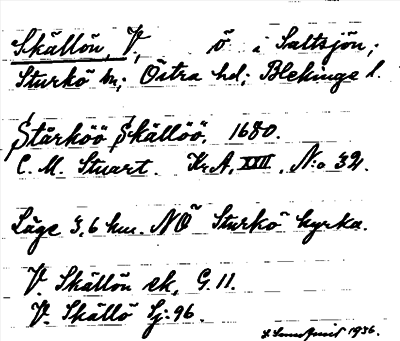 Skällön, V, ö i Saltsjön;
Sturkö sn; Östra hd; Blekinge l.
Stärköö Skällöö, 1680.
C. M. Stuart. Kr.A, XXII, N:o 32.
Läge 3,6 km. NÖ Sturkö kyrka.
V Skällön ek, G.11.
V. Skällö Sj. 96.
1936.